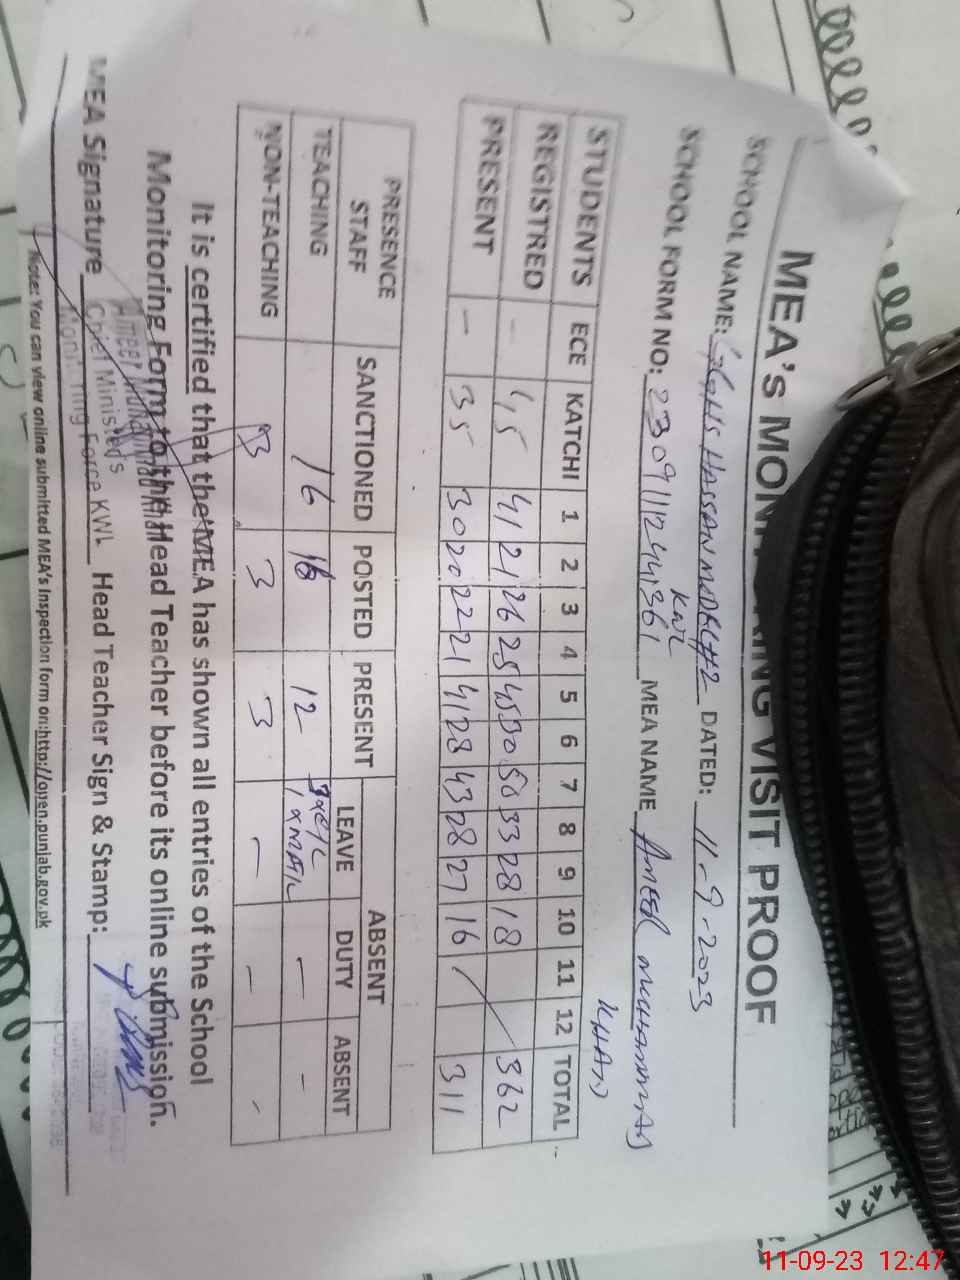 MEA's MONI ING VISIT PROOF
SCHOOL NAME: HASSAN MODEL #2 DATED: 11-9-2023
KWL
SCHOOL FORM NO: 2309111244361 MEA NAME AMEER MUHAMMAD
KHAN
STUDENTS ECE KATCHI 1 2 3 4 5 6 7 8 9 10 11 12 TOTAL
REGISTRED - 45 41 21 26 25 45 30 50 33 28 18 362
PRESENT - 35 30 20 22 21 41 28 43 28 27 16 311
PRESENCE STAFF SANCTIONED POSTED PRESENT ABSENT
LEAVE DUTY ABSENT
TEACHING 16 16 12 - -
NON-TEACHING 3 3 - - -
It is certified that the MEA has shown all entries of the School
Monitoring Form to the Head Teacher before its online submission.
MEA Signature Head Teacher Sign & Stamp:
Ameer Muhammad Khan
Chief Minister's
Monitoring Force KWL
Note: You can view online submitted MEA's Inspection form on:http://open.punjab.gov.pk
11-09-23 12:47